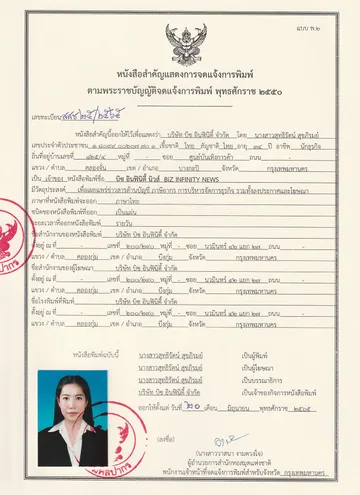 แบบ พ.๒
หนังสือสำคัญแสดงการจดแจ้งการพิมพ์
ตามพระราชบัญญัติจดแจ้งการพิมพ์ พุทธศักราช ๒๕๕๐
เลขทะเบียน สสช ๒๕/๒๕๖๕
หนังสือสำคัญนี้ออกให้ไว้เพื่อแสดงว่า บริษัท บิซ อินฟินิตี้ จำกัด โดย นางสาวสุทธิรัตน์ สุขภิรมย์
เลขประจำตัวประชาชน เชื้อชาติ ไทย สัญชาติ ไทย อายุ ปี อาชีพ นักธุรกิจ
ถิ่นที่อยู่บ้านเลขที่ ๘๒๕/๔ หมู่ที่ - ซอย ศูนย์บันเทิงการค้า ถนน -
แขวง / ตำบล คลองจั่น เขต / อำเภอ บางกะปิ จังหวัด กรุงเทพมหานคร
เป็น เจ้าของ หนังสือพิมพ์ชื่อ บิซ อินฟินิตี้ นิวส์ BIZ INFINITY NEWS
มีวัตถุประสงค์ เพื่อเผยแพร่ข่าวสารด้านบัญชี ภาษีอากร การบริหารจัดการธุรกิจ รวมทั้งลงประกาศและโฆษณา
ภาษาที่หนังสือพิมพ์จะออก ภาษาไทย
ชนิดของหนังสือพิมพ์ที่ออก เป็นแผ่น
ระยะเวลาที่ออกหนังสือพิมพ์ รายวัน
ชื่อสำนักงานของหนังสือพิมพ์ บริษัท บิซ อินฟินิตี้ จำกัด
ตั้งอยู่ ณ - เลขที่ ๒๐๐/๒๙๐ หมู่ที่ - ซอย นวมินทร์ ๔๒ แยก ๒๗ ถนน -
แขวง / ตำบล คลองกุ่ม เขต / อำเภอ บึงกุ่ม จังหวัด กรุงเทพมหานคร
ชื่อสำนักงานของผู้โฆษณา บริษัท บิซ อินฟินิตี้ จำกัด
ตั้งอยู่ ณ - เลขที่ ๒๐๐/๒๙๐ หมู่ที่ - ซอย นวมินทร์ ๔๒ แยก ๒๗ ถนน -
แขวง / ตำบล คลองกุ่ม เขต / อำเภอ บึงกุ่ม จังหวัด กรุงเทพมหานคร
ชื่อโรงพิมพ์ที่พิมพ์ บริษัท บิซ อินฟินิตี้ จำกัด
ตั้งอยู่ ณ - เลขที่ ๒๐๐/๒๙๐ หมู่ที่ - ซอย นวมินทร์ ๔๒ แยก ๒๗ ถนน -
แขวง / ตำบล คลองกุ่ม เขต / อำเภอ บึงกุ่ม จังหวัด กรุงเทพมหานคร
หนังสือพิมพ์ฉบับนี้ นางสาวสุทธิรัตน์ สุขภิรมย์ เป็นผู้พิมพ์
นางสาวสุทธิรัตน์ สุขภิรมย์ เป็นผู้โฆษณา
นางสาวสุทธิรัตน์ สุขภิรมย์ เป็นบรรณาธิการ
บริษัท บิซ อินฟินิตี้ จำกัด เป็นเจ้าของกิจการหนังสือพิมพ์
ออกให้ตั้งแต่ วันที่ ๒๐ เดือน มิถุนายน พุทธศักราช ๒๕๖๕
(ลงชื่อ)
(นางสาววาสนา งามดวงใจ)
ผู้อำนวยการสำนักหอสมุดแห่งชาติ
พนักงานเจ้าหน้าที่จดแจ้งการพิมพ์สำหรับจังหวัด กรุงเทพมหานคร